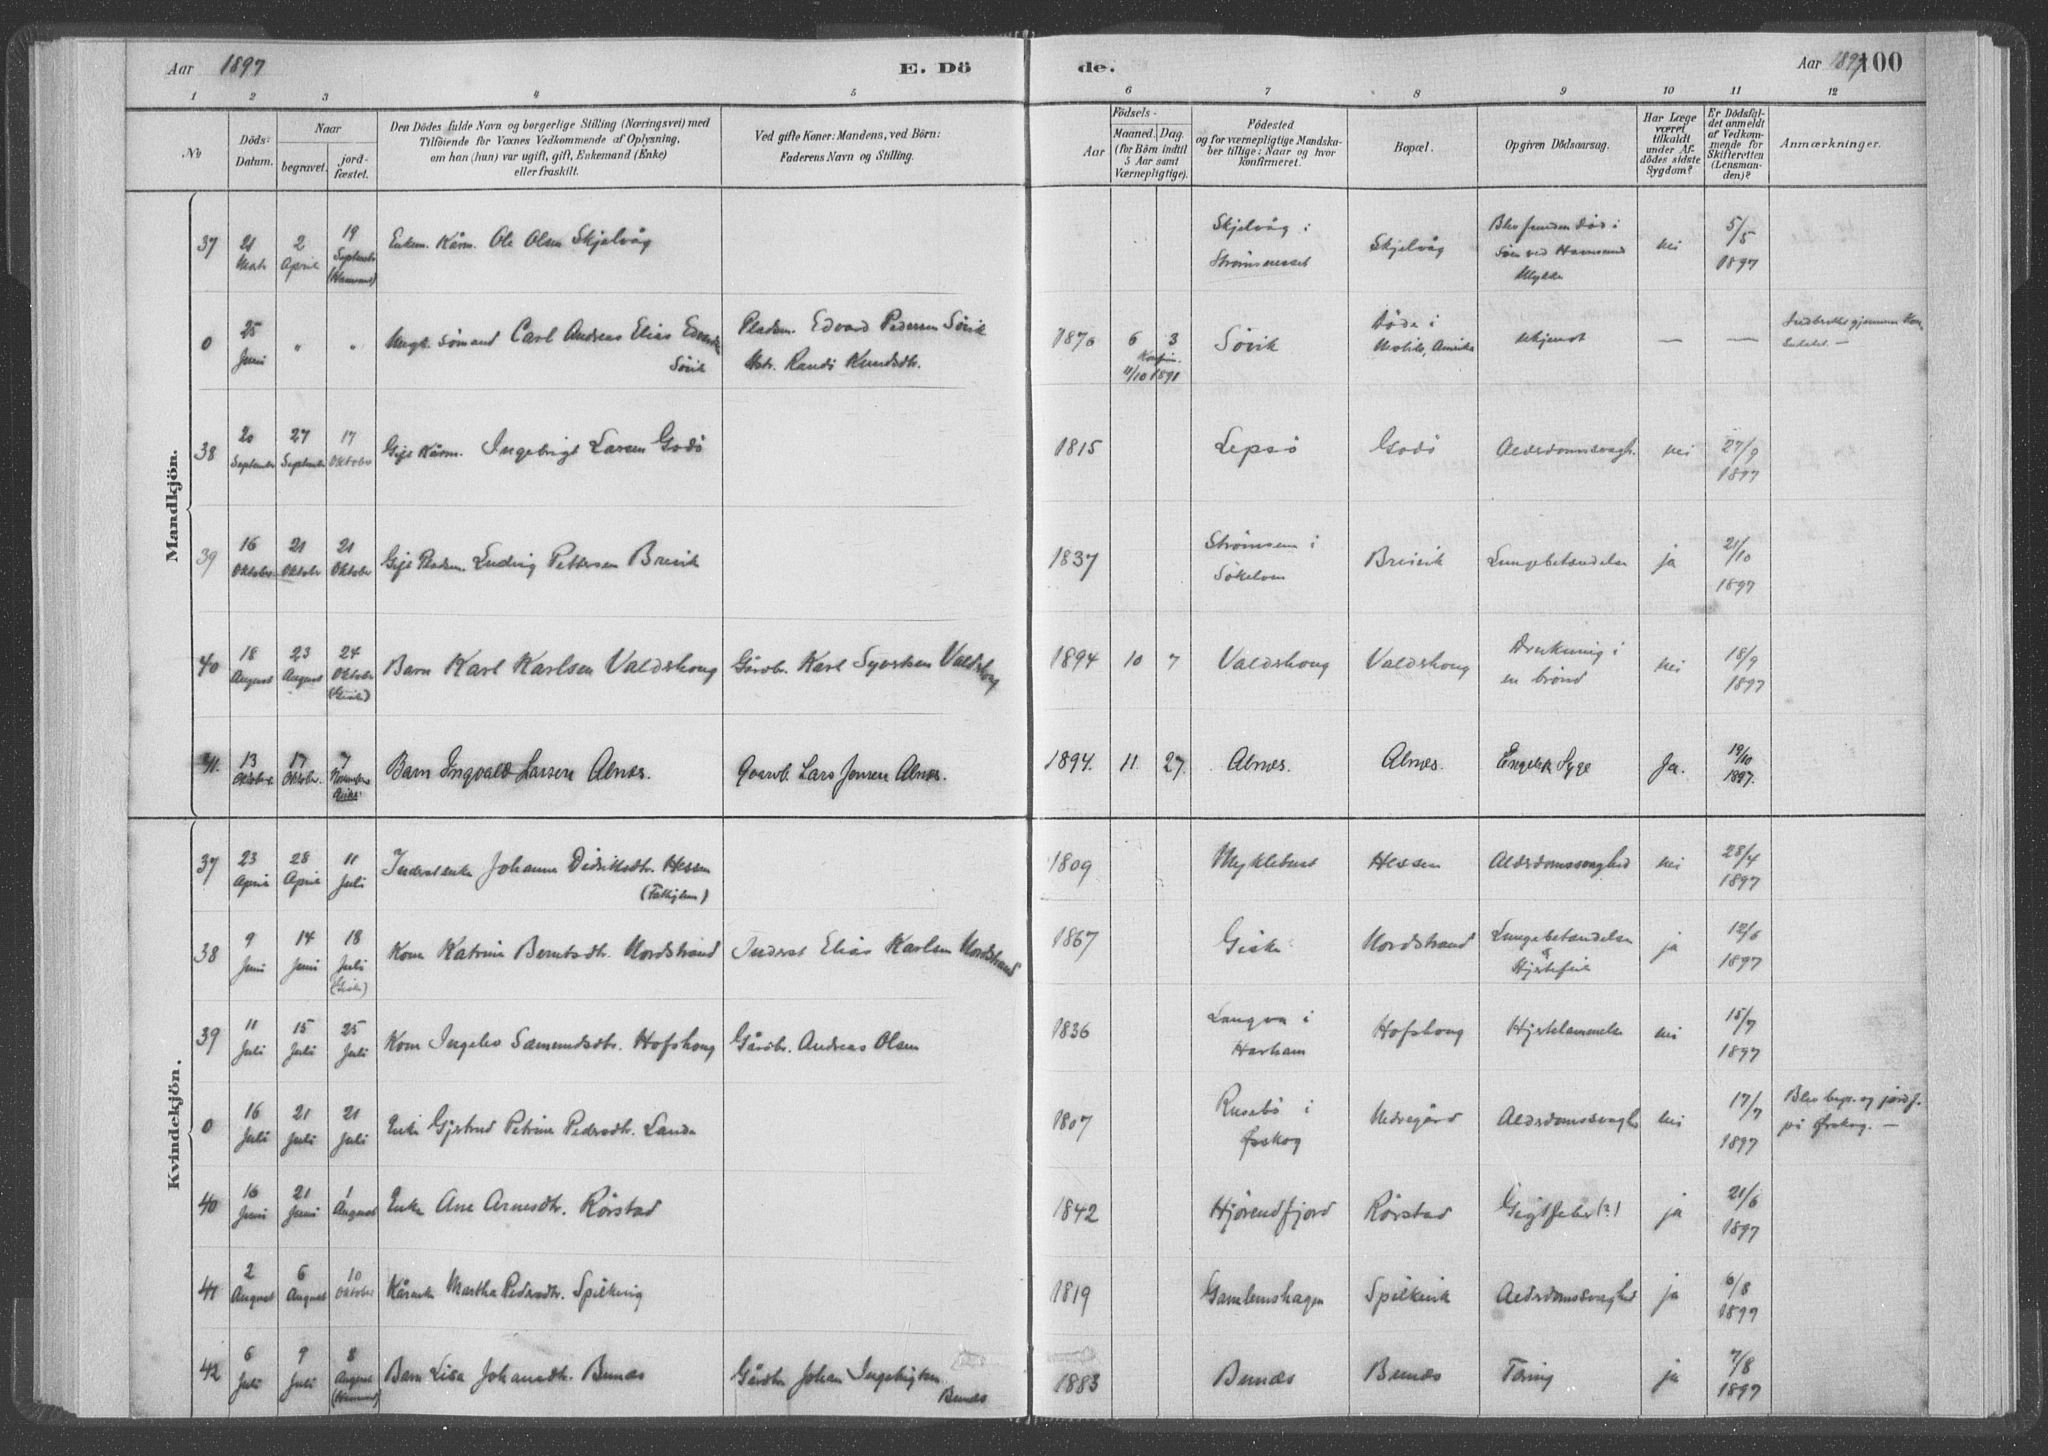 Aar 1897 E. Dö de. Aar 1897 100
1 2 3 4 5 6 7 8 9 10 11 12
No
Döds-Datum.
Naar
begravet.
jord-fæstet.
Den Dödes fulde Navn og borgerlige Stilling (Næringsvei) med
Tilföiende for Voxnes Vedkommende af Oplysning,
om han (hun) var ugift, gift, Enkemand (Enke)
eller fraskilt.
Ved gifte Koner: Mandens, ved Börn:
Faderens Navn og Stilling.
Födsels-
Aar
Maaned. Dag.
(for Börn indtil
5 Aar samt
Værnepligtige).
Födested
og for værnepligtige Mandska-
ber tillige: Naar og hvor
konfirmeret.
Bopæl.
Opgiven Dödsaarsag.
Har Læge
været
tilkaldt
under Af-
dödes sidste
Sygdom?
Er Dödsfal-
det anmeldt
af Vedkom-
mende for
Skifteretten
(Lensman-
den)?
Anmærkninger.
Mandkjön.
37 21 Marts 2 April 19 September Enkem. Kårm. Ole Olsen Skjelvåg Skjelvåg i Strømsneset Skjelvåg Blev funden død i Søen ved Hamsund Ulykke nei 5/5 1897
0 25 Juni " " Ungk. Sømand Carl Andreas Elias Edvardsen Søvik Pladsm. Edvard Pedersen Søvik Hstr. Randi Knudsdtr. 1876 6 3 Konfirm. 11/10 1891 Søvik Døde i Mobile, Amerika ukjendt — — Indberettet gjennem Kon-sulatet. —
38 20 September 27 September 17 Oktober Gift Kårm. Ingebrigt Larsen Godø 1815 Lepsø Godø Alderdomssvagh. nei 27/9 1897
39 16 Oktober 21 Oktober 21 Oktober Gift Pladsm. Ludvig Pettersen Breivik 1837 Strømmen i Søkelven Breivik Lungebetændelse ja 21/10 1897
40 18 August 23 August 24 Oktober (Giske) Barn Karl Karlsen Valdshoug Gårdbr. Karl Syvertsen Valdshoug 1894 10 7 Valdshoug Valdshoug Drukning i en brønd nei 18/9 1897
41. 13 Oktober. 17 Oktober. 7 November Barn Ingvald Larsen Alnæs. Gaardb. Lars Jensen Alnæs. 1894. 11. 27. Alnæs. Alnæs. Engelsk Syge Ja. 19/10 1897.
Kvindekjön.
37 23 April 28 April 11 Juli Inderstenke Johanne Didriksdtr. Hessen (Fattiglem) 1809 Myklebust Hessen Alderdomssvaghed nei 28/4 1897
38 9 Juni 14 Juni 18 Juli (Giske) Kone Katrine Berntsdtr. Nordstrand Inderst Elias Karlsen Nordstrand 1867 Giske Nordstrand Lungebetændelse & Hjertefeil ja 12/6 1897
39 11 Juli 15 Juli 25 Juli Kone Ingeles Samundsdtr. Hofshoug Gårdbr. Andreas Olsen 1836 Longva i Harham Hofshoug Hjertelammelse nei 15/7 1897
0 16 Juli 21 Juli 21 Juli Enke Gjertrud Petrine Pedersdtr. Lande 1807 Rusebø i Ørskog Nedregård Alderdomssvaghed nei 17/7 1897 Blev begr. og jordf. på Ørskog. —
40 16 Juni 21 Juni 1 August Enke Ane Arnesdtr. Rørstad 1842 Hjørendfjord Rørstad Gigtfeber (?) ja 21/6 1897
41 2 August 6 August 10 Oktober Kårenke Martha Pedersdtr. Spilkevig 1819 Gamlemshagen Spilkevik Alderdomssvaghed ja 6/8 1897
42 6 Juli 9 Juli 8 August Barn Lisa Johansdtr. Bunæs Gårdbr. Johan Ingebrigtsen Bunæs 1883 Bunæs Bunæs Tæring ja 7/8 1897